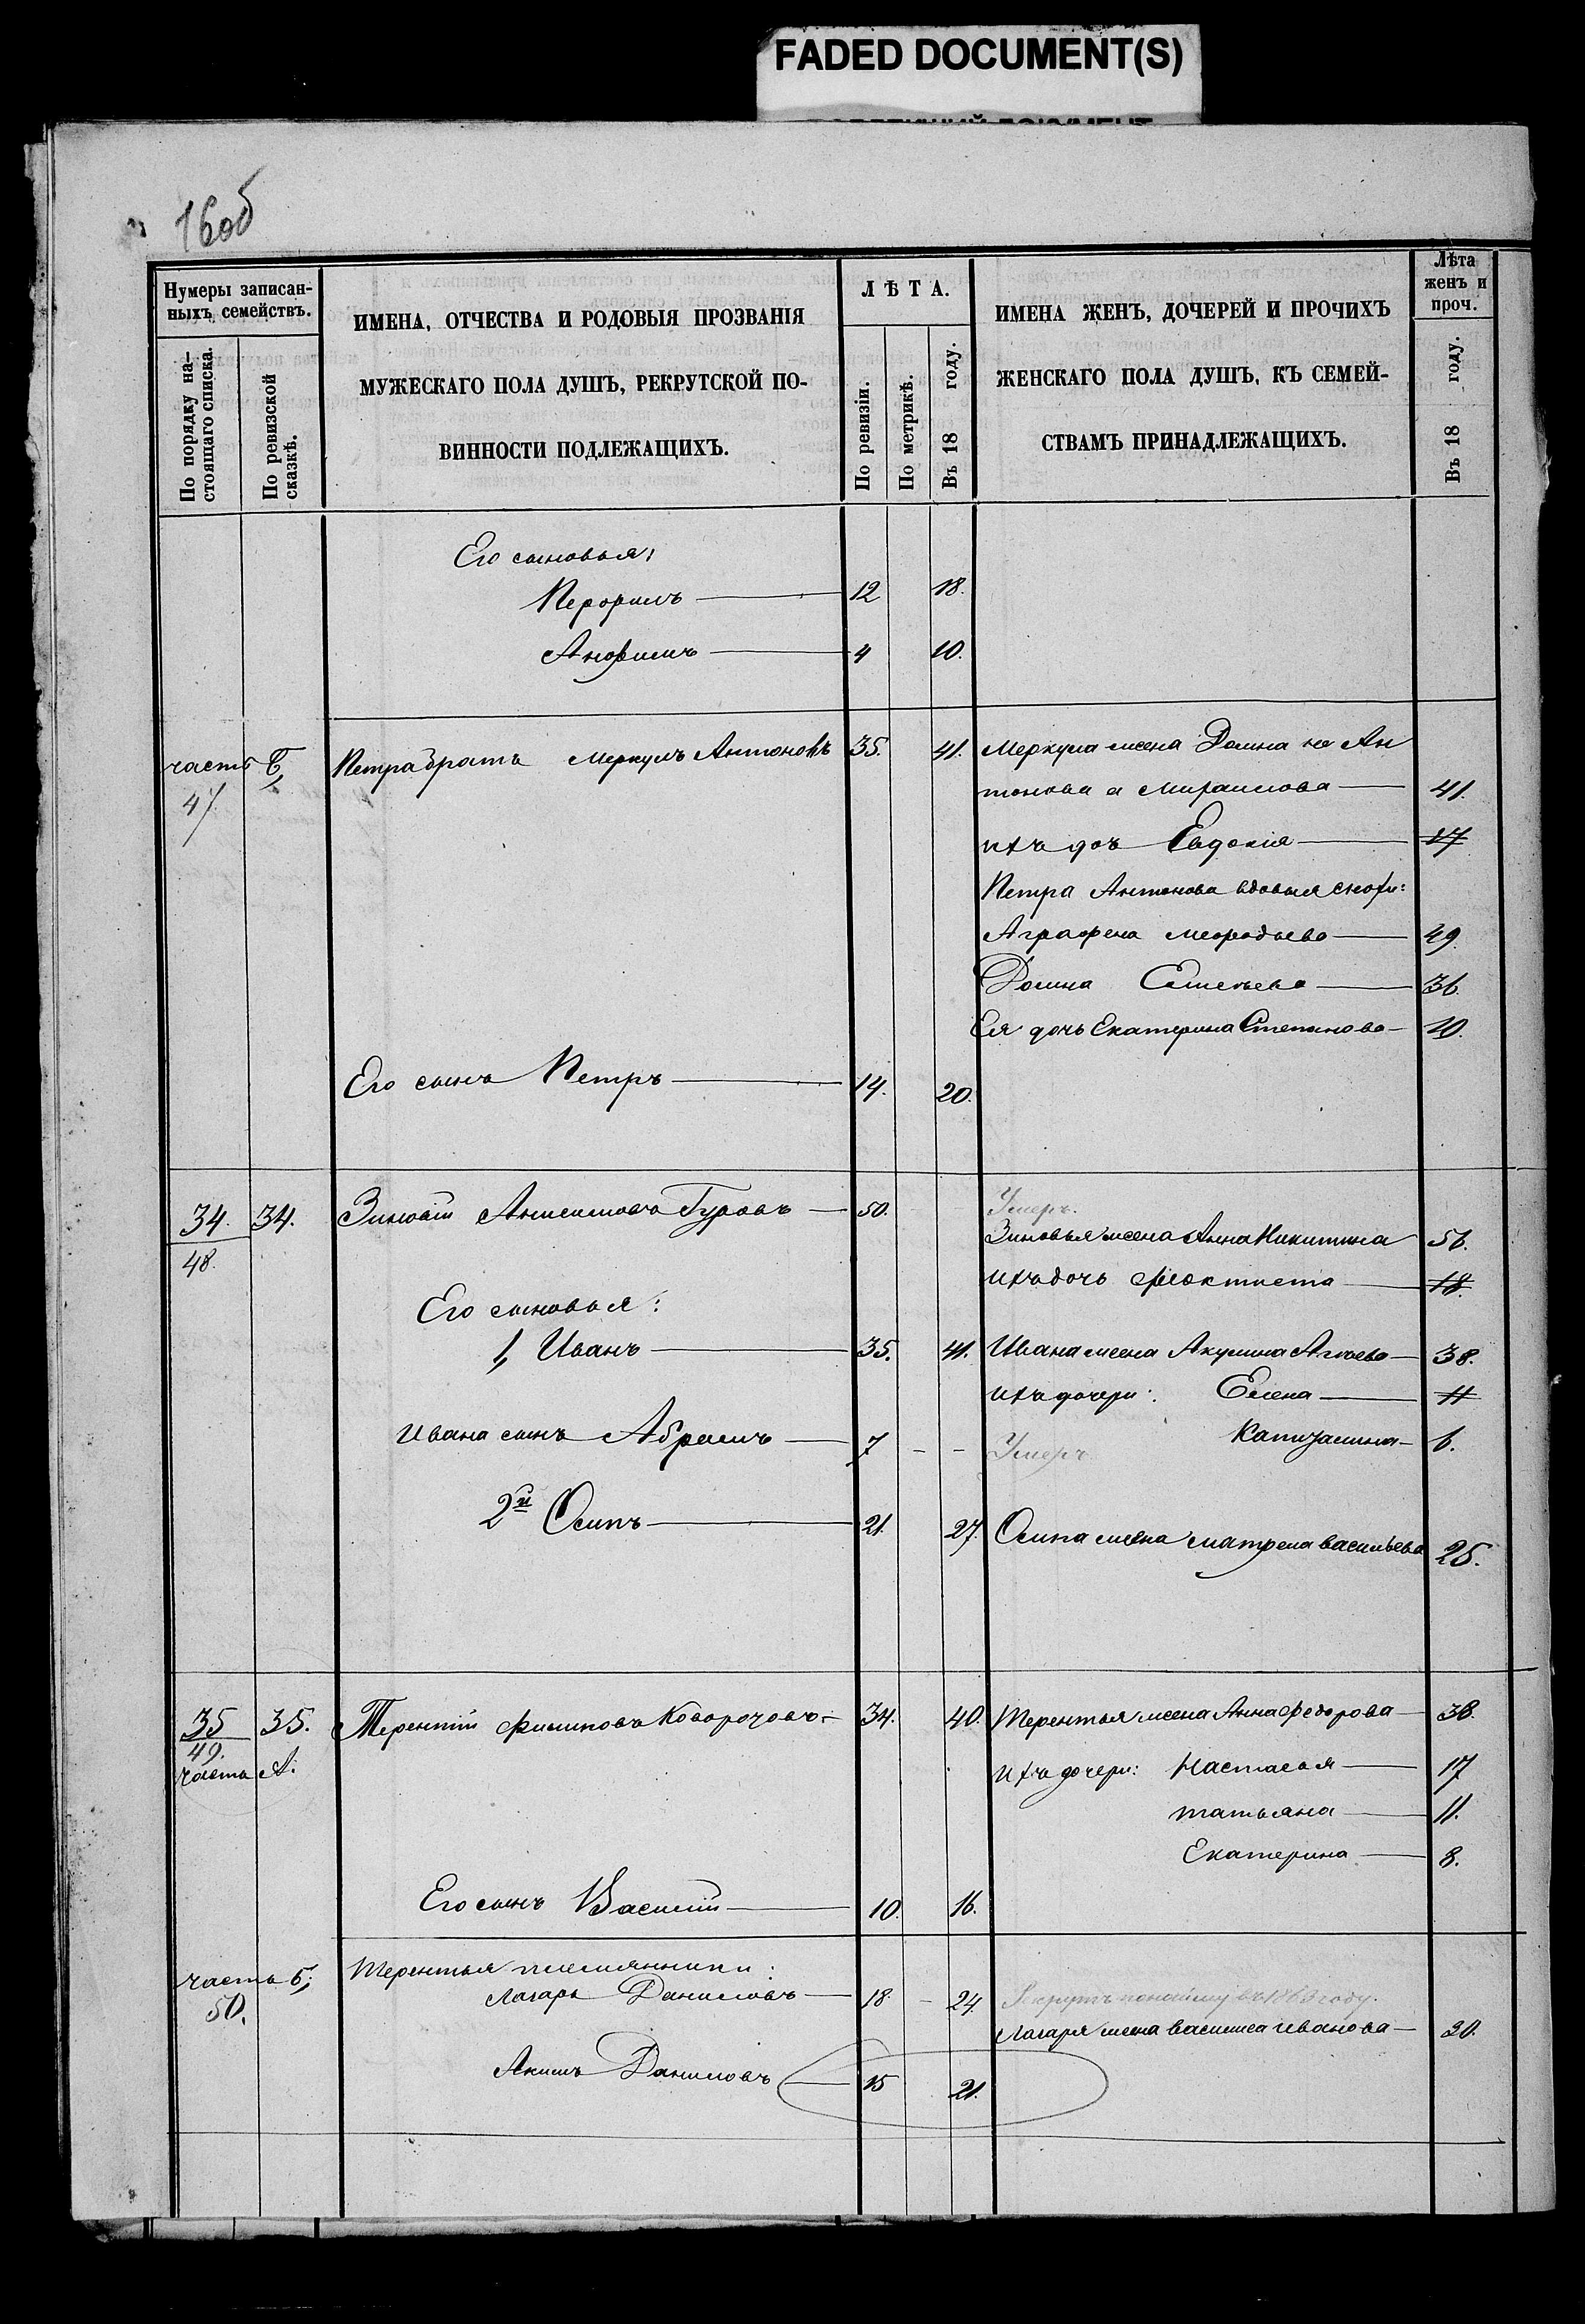 FADED DOCUMENT(S)
16об
Нумеры записан-
ныхъ семействъ.
По порядку на-
стоящаго списка.
По ревизской
сказкѣ.
ИМЕНА, ОТЧЕСТВА И РОДОВЫЯ ПРОЗВАНІЯ
МУЖЕСКАГО ПОЛА ДУШЪ, РЕКРУТСКОЙ ПО-
ВИННОСТИ ПОДЛЕЖАЩИХЪ.
ЛѢТА.
По ревизіи.
По метрикѣ.
Въ 18 году.
ИМЕНА ЖЕНЪ, ДОЧЕРЕЙ И ПРОЧИХЪ
ЖЕНСКАГО ПОЛА ДУШЪ, КЪ СЕМЕЙ-
СТВАМЪ ПРИНАДЛЕЖАЩИХЪ.
Лѣта
женъ и
проч.
Въ 18 году.
Его сыновья:
12 18.
4 10.
часть Б, Петра братъ Меркулъ Антоновъ 35. 41. Меркула жена Домна Ан
47
тонова 41.
ихъ доч Евдокія 17
Петра Антонова вдовыя снохи:
Аграфена 49.
Домна 36.
Ея дочь Екатерина Степанова 10.
Его сынъ Петръ 14. 20.
34. 34. Зиновій Анисимовъ Гуровъ 50. Умеръ.
48.
Зиновья жена Анна Никитина 56.
ихъ дочь Феоктиста 18.
Его сыновья:
1, Иванъ 35. 41. Ивана жена Акулина 38.
ихъ дочери: Елена 11
Ивана сынъ Абрамъ 7 - - Умеръ
6.
2й Осипъ 21. 27. Осипа жена Матрена Васильева 25.
35 35. Терентій Филиповъ 34. 40. Терентья жена Анна Федорова 38.
49.
часть А.
ихъ дочери: Настасья 17
Татьяна 11.
Екатерина 8.
Его сынъ Василій 10. 16.
часть Б; Терентья племянники:
50.
Лазарь Даниловъ 18. - 24. въ 1863 году.
Лазаря жена Василиса Иванова 20.
Акимъ Даниловъ 15 21.